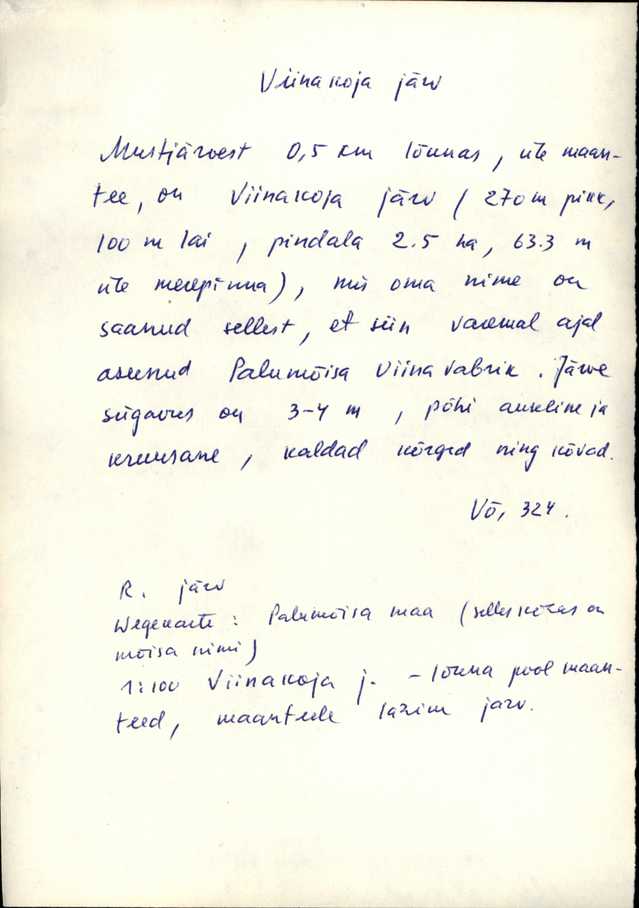 Viinakoja järv
Mustjärvest 0,5 km lõunas, üle maan-
tee, on Viinakoja järv (270 m pikk,
100 m lai, pindala 2.5 ha, 63.3 m
üle merepinna), mis oma nime on
saanud sellest, et siin varemal ajal
asunud Palumõisa viinavabrik. Järve
sügavus on 3-4 m, põhi auklik ja
kruusane, kaldad kõrged ning kõvad.
Võ, 324.
R. järv
Wegekarte: Palumõisa maa (selles on
mõisa nimi)
1:100 Viinakoja j. - lõuna pool maan-
teed, maanteele lähim järv.